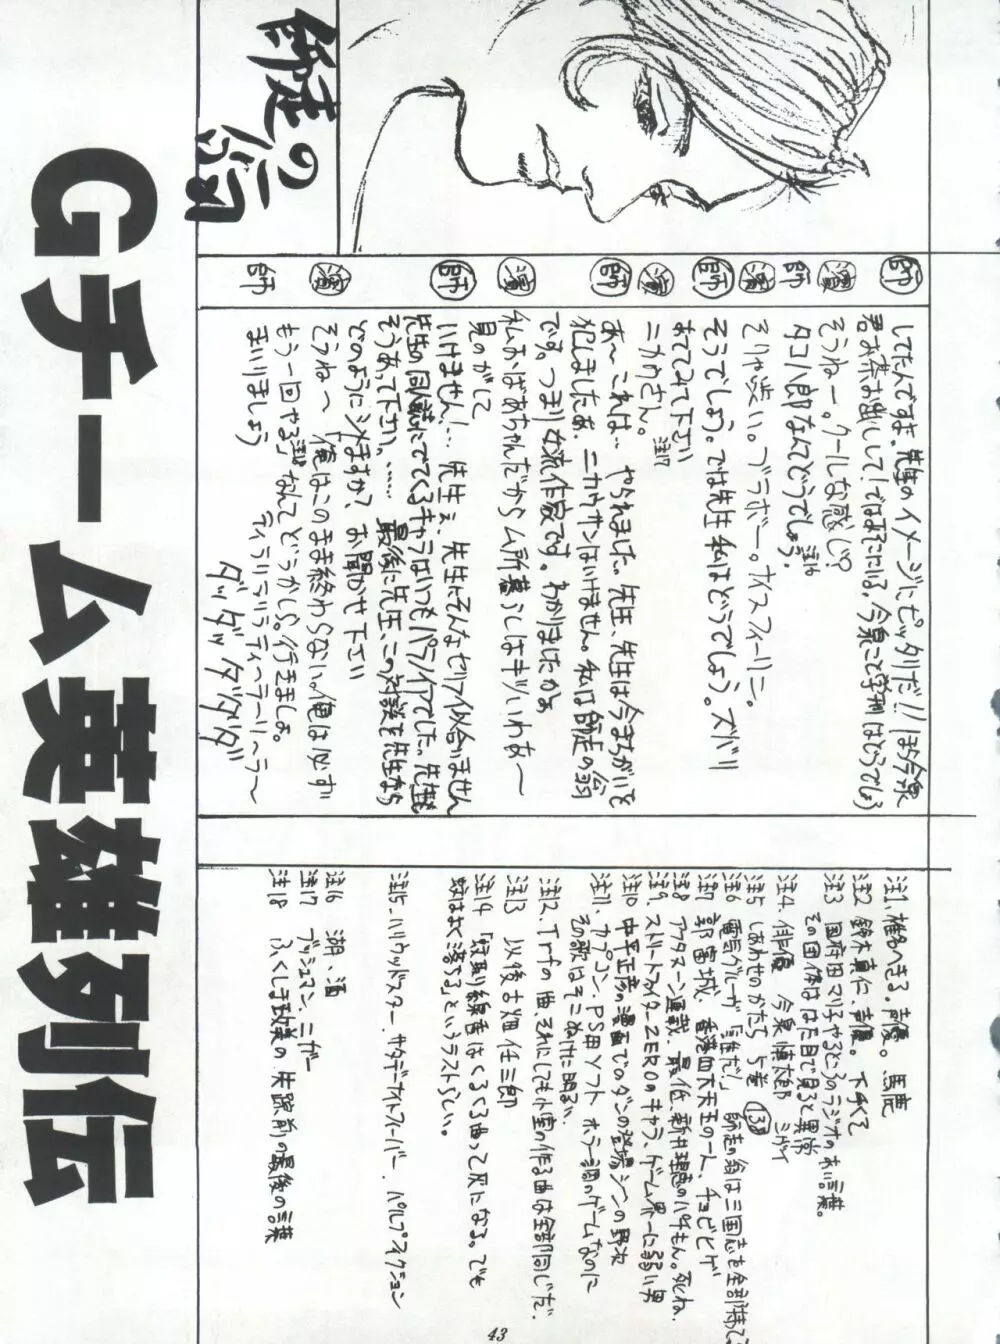 Gチーム英雄列伝
師走の翁
師 してたんですま、先生のイメージにピッタリだ!!ぼ今泉
君お茶お出しして!では好きにいる。今泉こと学州はどうでしょう
濱 そうねー。クールな感じ?
師 タコ八郎なんてどうでしょう。注16
濱 そりゃ渋い。ブラボー。ナイスフィーリン。
師 そうでしょう。では先生私はどうでしょう。ズバリ
おててみて下さい
濱 ニカウさん。注17
師 あ〜これは…やられました。先生、先生は今まちがいを
犯しましたぁ。ニカウサンはいけません。私は師走の翁
です。つまり女流作家です。わかりましたかぁ
濱 私おばあちゃんだからム所暮らしはキツいわぁ〜
見のがして
師 いけません!…先生ェ、先生にそんなセリフ似合いません
先生の同人誌にでてくるキャラはいつもパワフルでした…先生
そうあって下さい。……最後に先生、この対談を先生なら
どのようにシメますか?お聞かせ下さい
濱 そうねへ「俺はこのまま終わらない、俺は必ず
もう一回やる」注18なんてどうかしら。行きましょ。
師 まいりましょう ティラリラリラティ〜テーリ〜ラ〜
ダッダッダダダダ
注1 椎名へきる。声優。馬鹿
注2 鈴木真仁、声優。下手くて
注3 国府田マリ子やるところのラジオの木信葉。
その団体ははた目で見ると異常
注4. 俳優 今泉慎太郎 ミゲイ
注5 しあわせのかたち 5巻 13P
注6 電気グルーヴ「誰だ!」 師走の翁は三国志を全部様で
注7 郭富城、香港四大天王の一人、チョビヒゲ
注8 アフタヌーン連載、最低、新井理恵のパチもん。死ね。
注9. ストリートファイターZEROのキャラ、ゲーム界一に弱い男
注10 中平正彦の漫画でのダンの登場シーンの野次
注11、カプコン、PS用ソフト ホラー調のゲームなのに
その歌はそこぬけに明るい。
注12. Trfの曲、それにしても小室の作る曲は全部同じだ.
注13 以後古畑任三郎
注14 「蚊取り線香はくるくる曲って灰になる。でも
蚊はまっすぐ落ちる」というラストらしい。
注15. ハリウッドスター. サタデーナイトフィーバー. パルプフィクション
注16 海、酒
注17 ブッシュマン、ニガー
注18 ふくしま政美の失踪前の最後の言葉
43